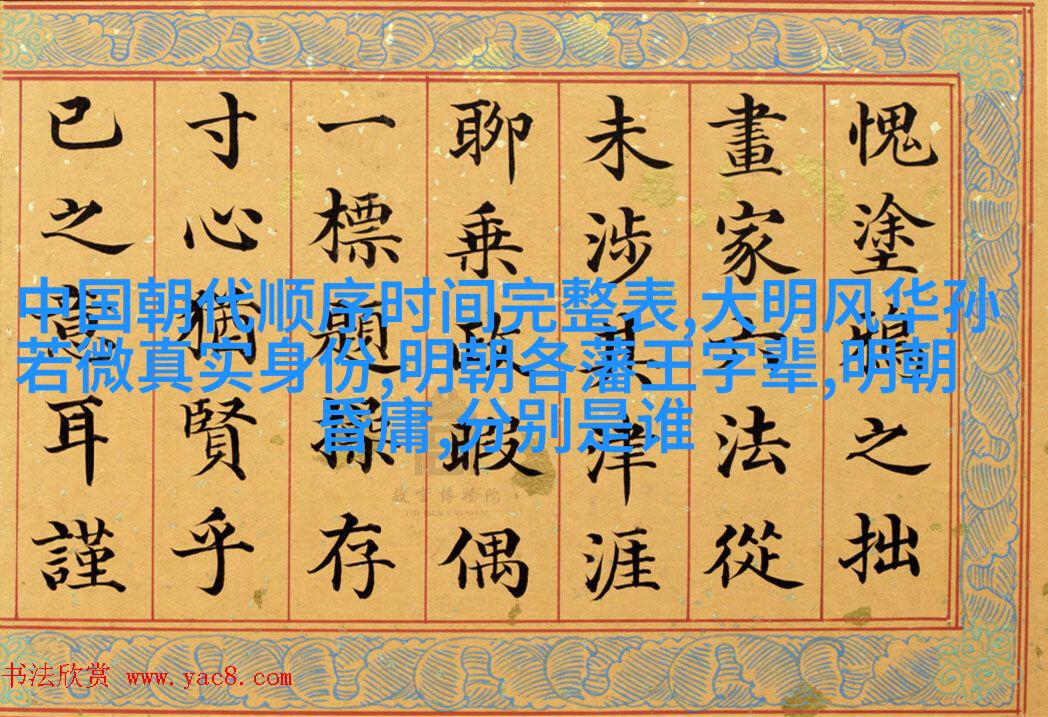 愧塗鴉之拙
畫家六法從
未涉其津涯
聊乘政暇偶
一標題存
寸心猶賢乎
已之意耳謹
中国朝代顺序时间完整表,大明风华孙
若微真实身份,明朝各藩王字辈,明朝
昏庸,分别是谁
故宫博物院
THE PALACE MUSEUM
书法欣赏 www.yac8.com